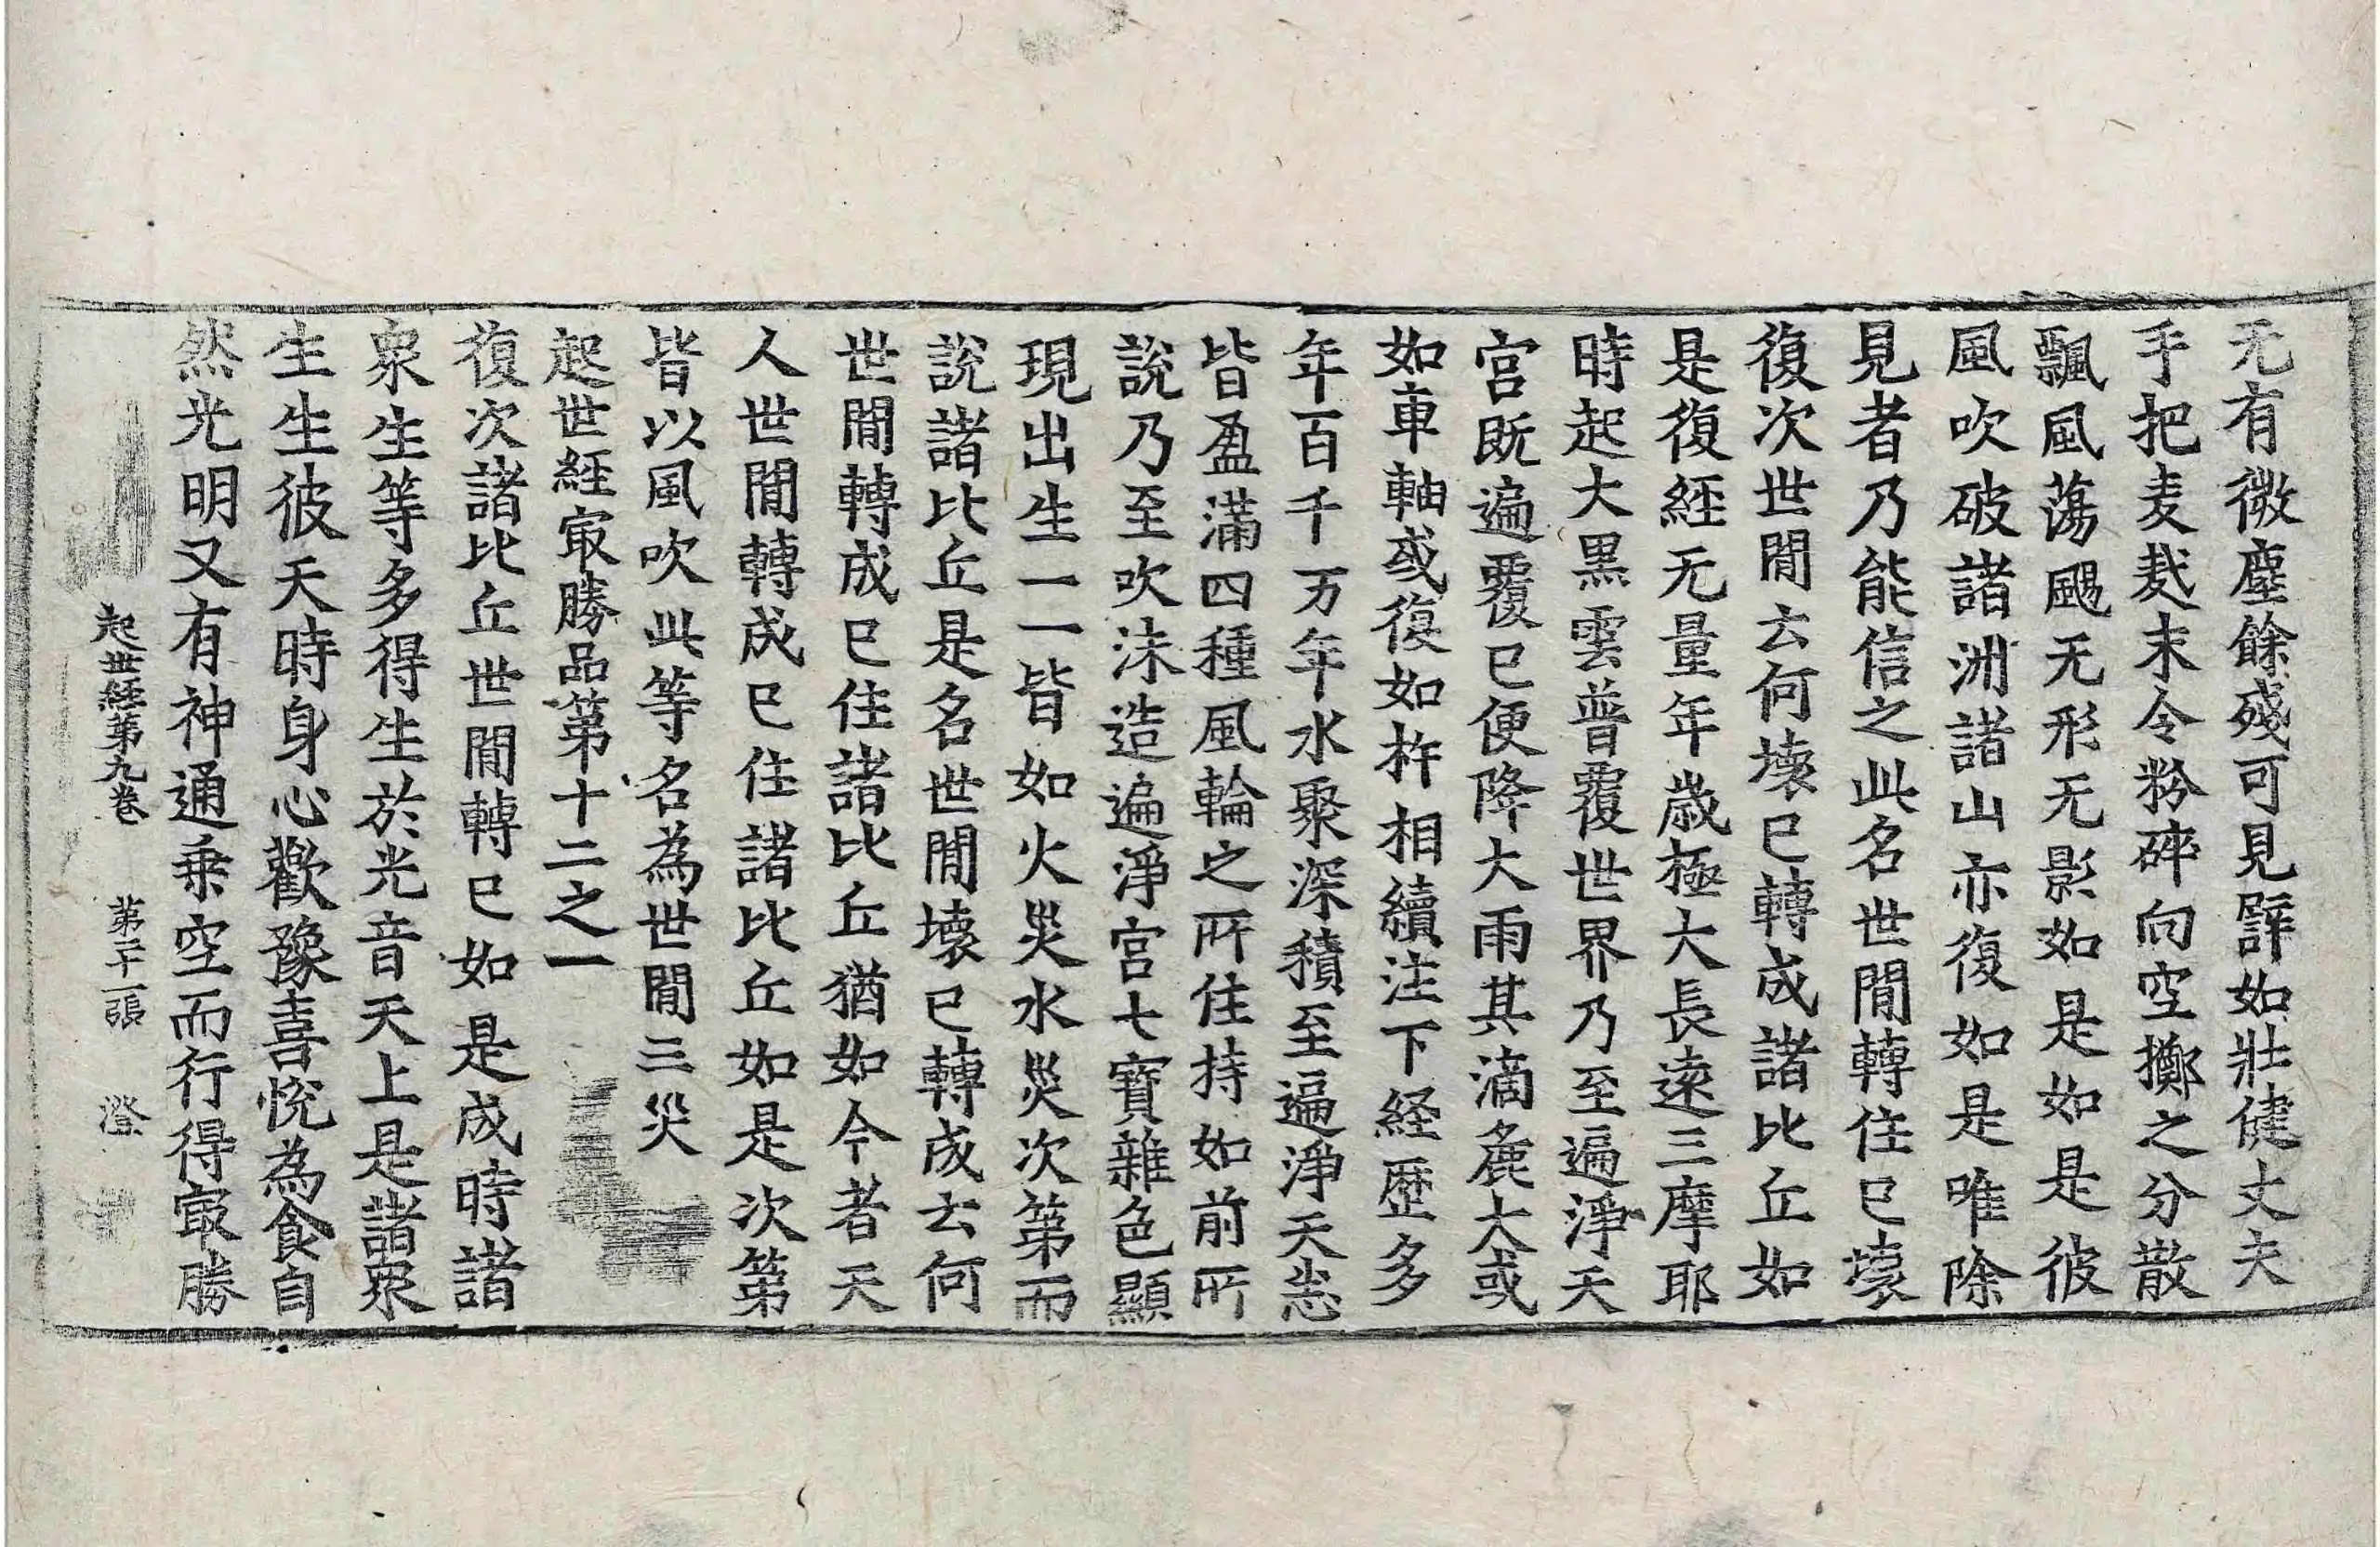 无有微塵餘殘可見譬如壯健丈夫
手把麦麨末令粉碎向空擲之分散
飄風蕩颺无形无影如是如是彼
風吹破諸洲諸山亦復如是唯除
見者乃能信之此名世間轉住已壞
復次世間云何壞已轉成諸比丘如
是復経无量年歲極大長遠三摩耶
時起大黒雲普覆世界乃至遍淨天
宮既遍覆已便降大雨其滴麁大或
如車軸或復如杵相續注下経歴多
年百千万年水聚深積至遍淨天悉
皆盈滿四種風輪之所住持如前所
說乃至吹沫造遍淨宮七寶雜色顯
現出生一一皆如火災水災次第而
說諸比丘是名世間壞已轉成云何
世間轉成已住諸比丘猶如今者天
人世間轉成已住諸比丘如是次第
皆以風吹此等名為世間三災
起世経㝡勝品第十二之一
復次諸比丘世間轉已如是成時諸
衆生等多得生於光音天上是諸衆
生生彼天時身心歡豫喜悅為食自
然光明又有神通乗空而行得㝡勝
起世経第九卷 第二十一張 澄